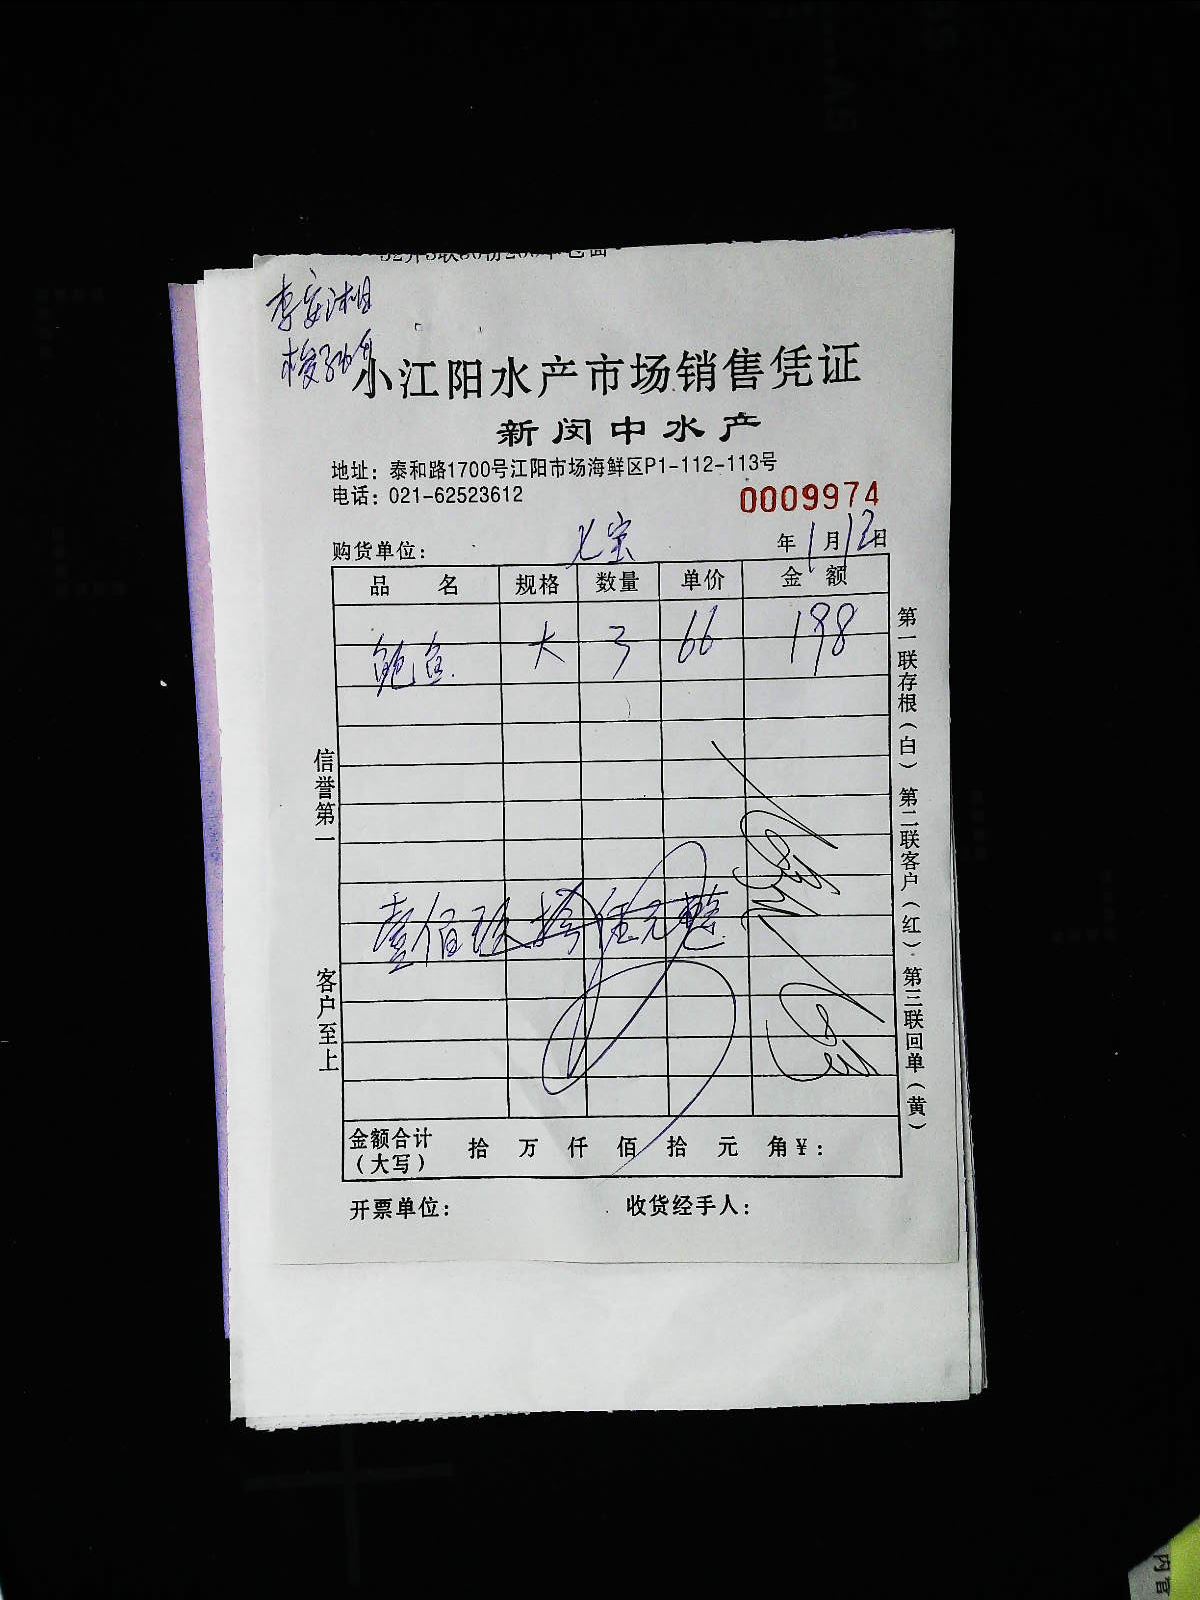 小江阳水产市场销售凭证
新闵中水产
地址：泰和路1700号江阳市场海鲜区P1-112-113号
电话：021-62523612
0009974
购货单位： 七宝 年 1 月 12 日
品 名 规格 数量 单价 金 额
鲍鱼 大 3 66 198
壹佰玖拾 元整
金额合计（大写） 拾 万 仟 佰 拾 元 角 ¥：
开票单位： 收货经手人：
信誉第一 客户至上
第一联存根（白） 第二联客户（红） 第三联回单（黄）
内官